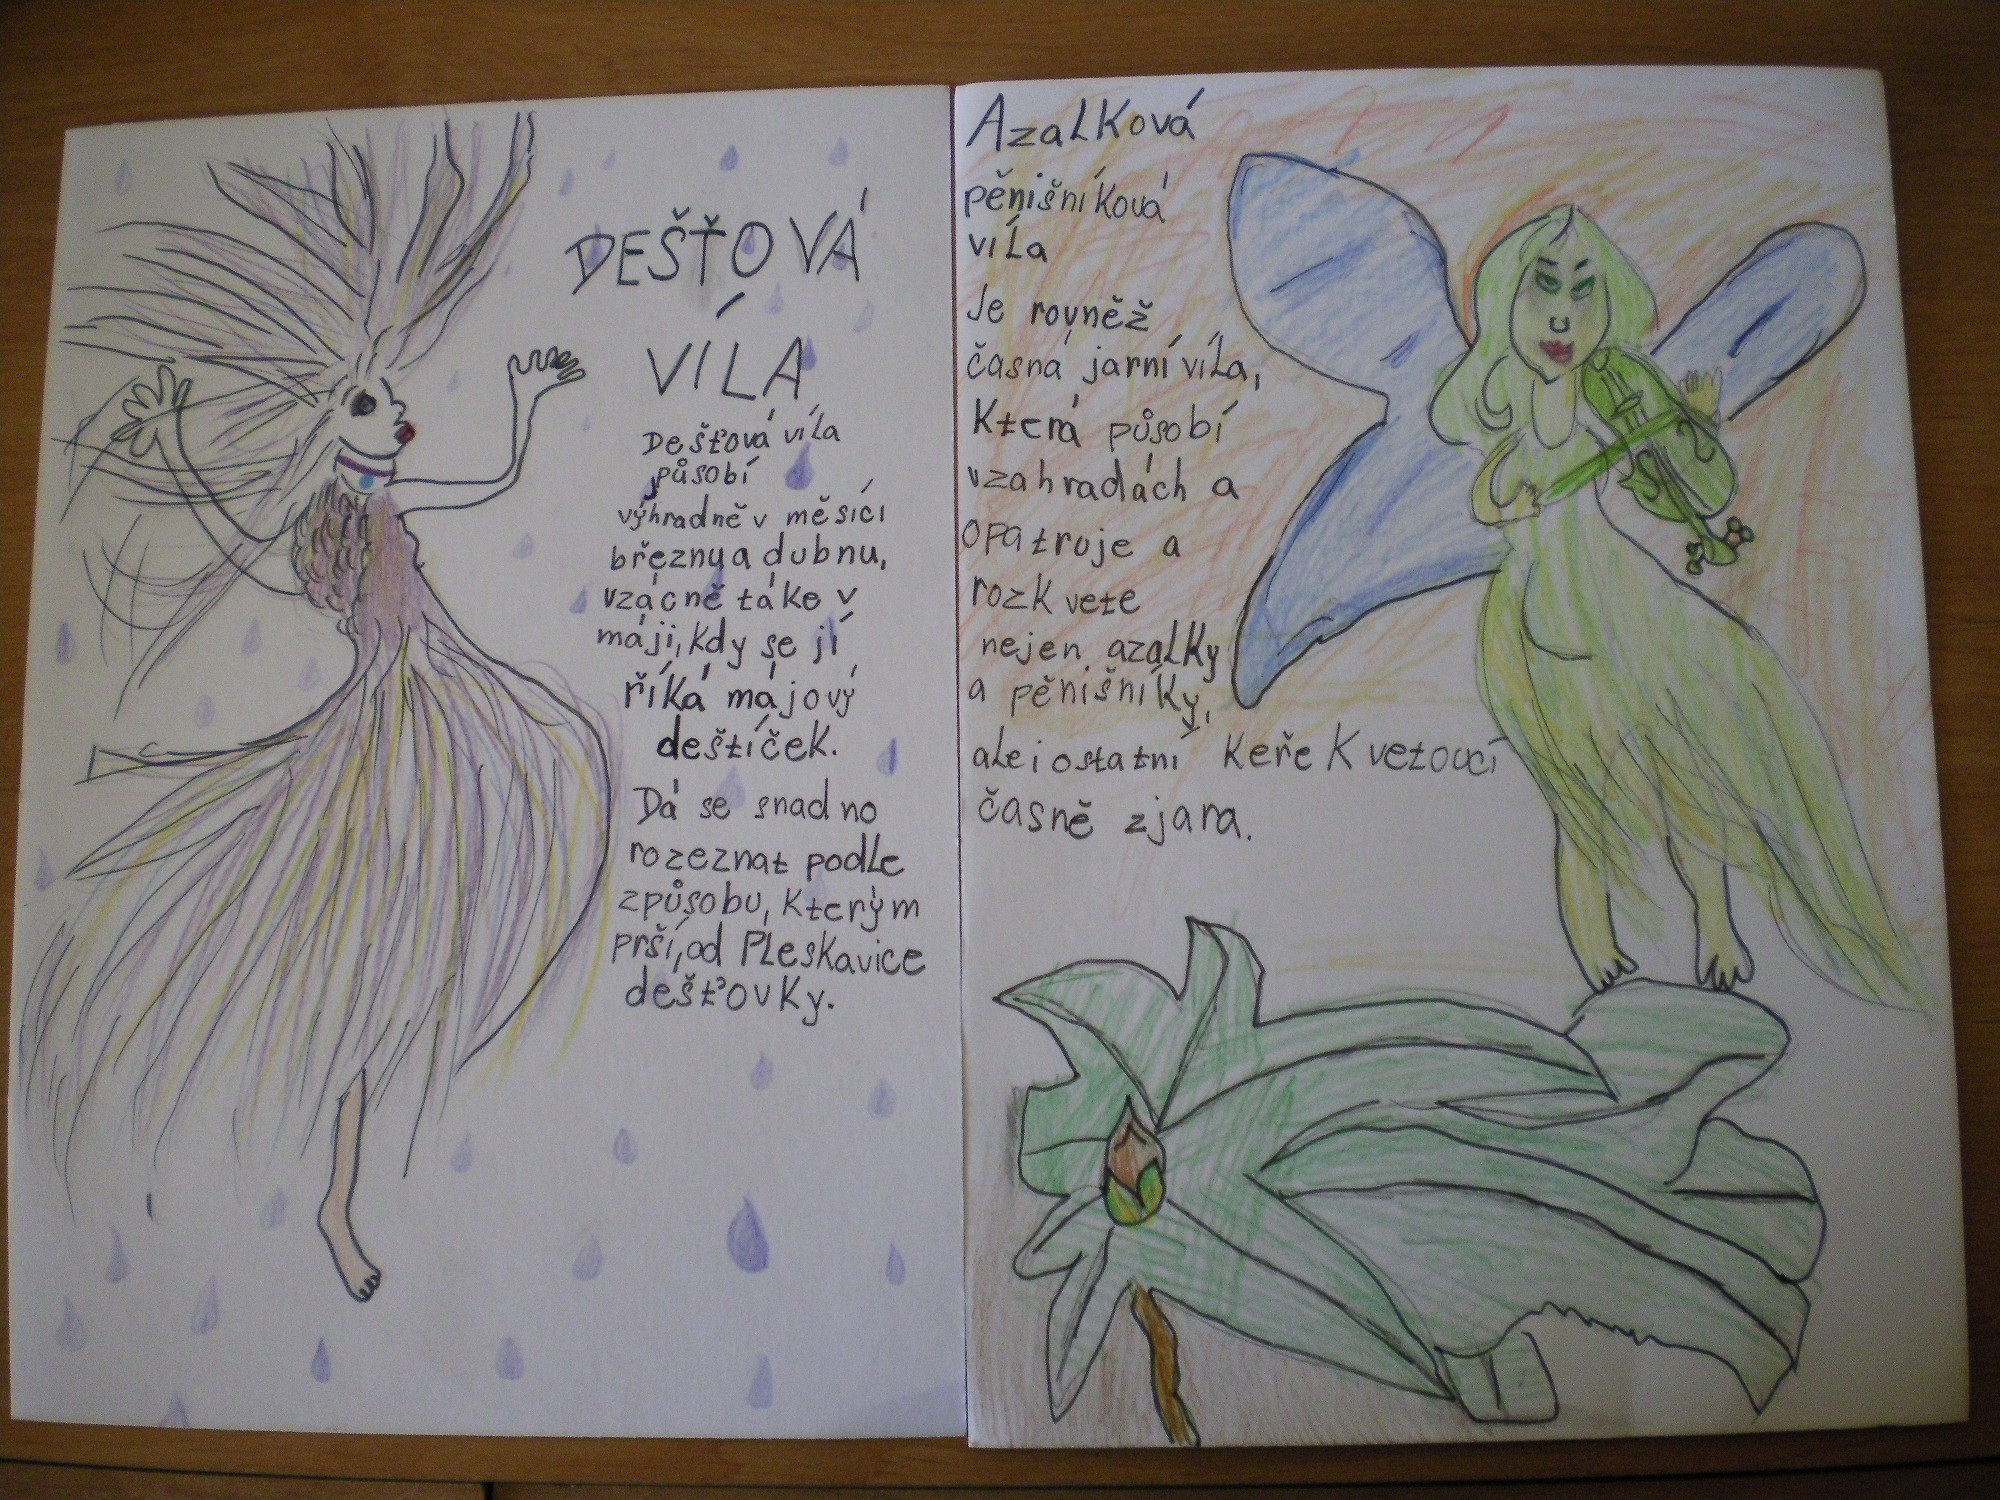 DEŠŤOVÁ
VÍLA
Dešťová víla
působí
výhradně v měsíci
březnu a dubnu,
vzácně také v
máji, kdy se jí
říká májový
deštíček.
Dá se snadno
rozeznat podle
způsobu, kterým
prší, od Pleskavice
dešťovky.
Azalková
pěnišníková
víla
Je rovněž
časná jarní víla,
která působí
v zahradách a
opatruje a
rozkvete
nejen azalky
a pěnišníky,
ale i ostatní keře kvetoucí
časně zjara.